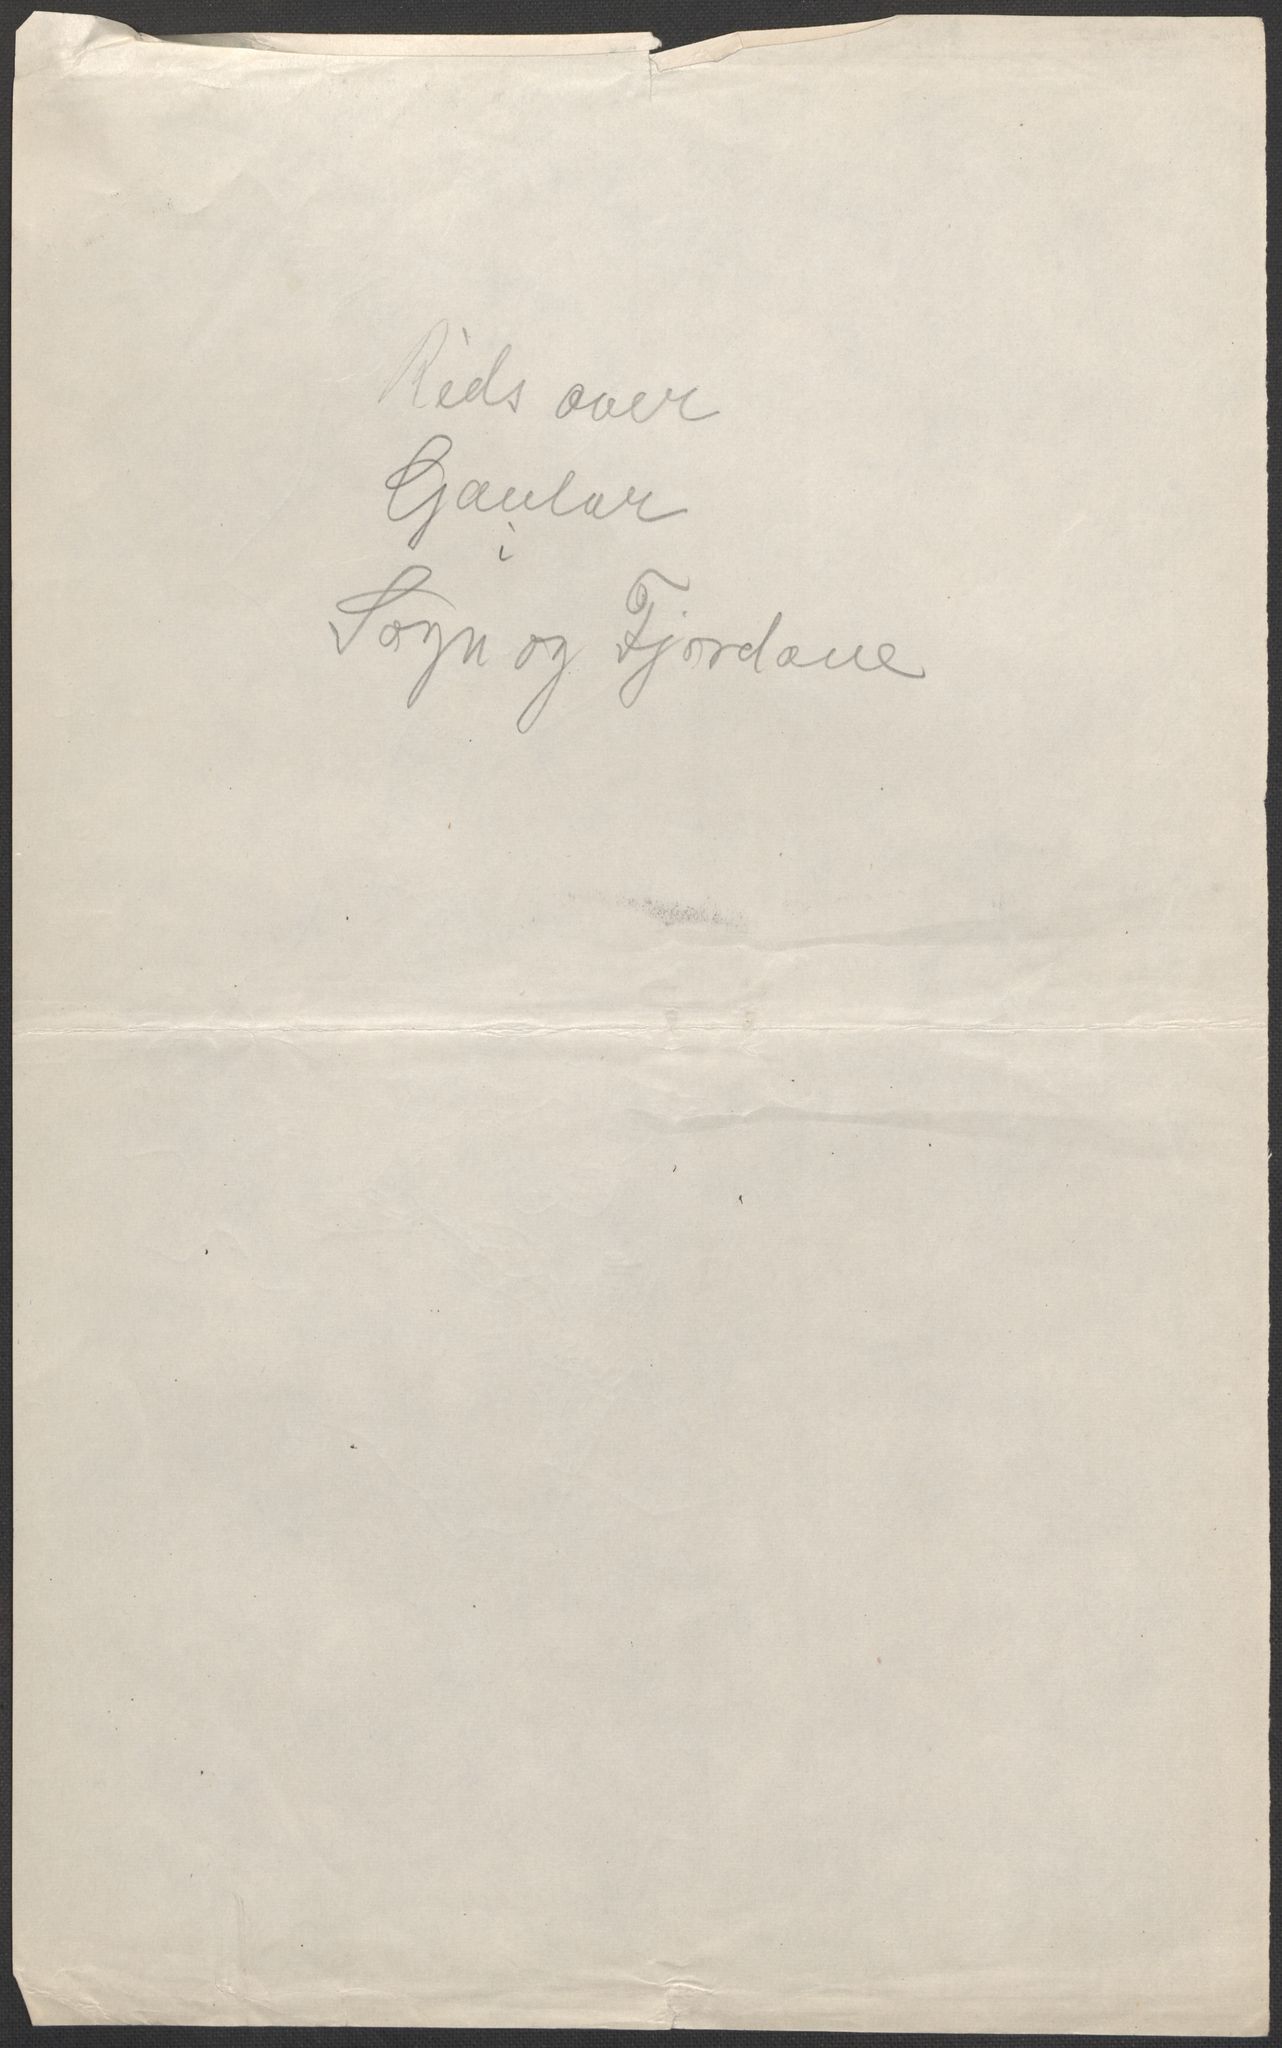 Rids over
Gaular
i
Sogn og Fjordane